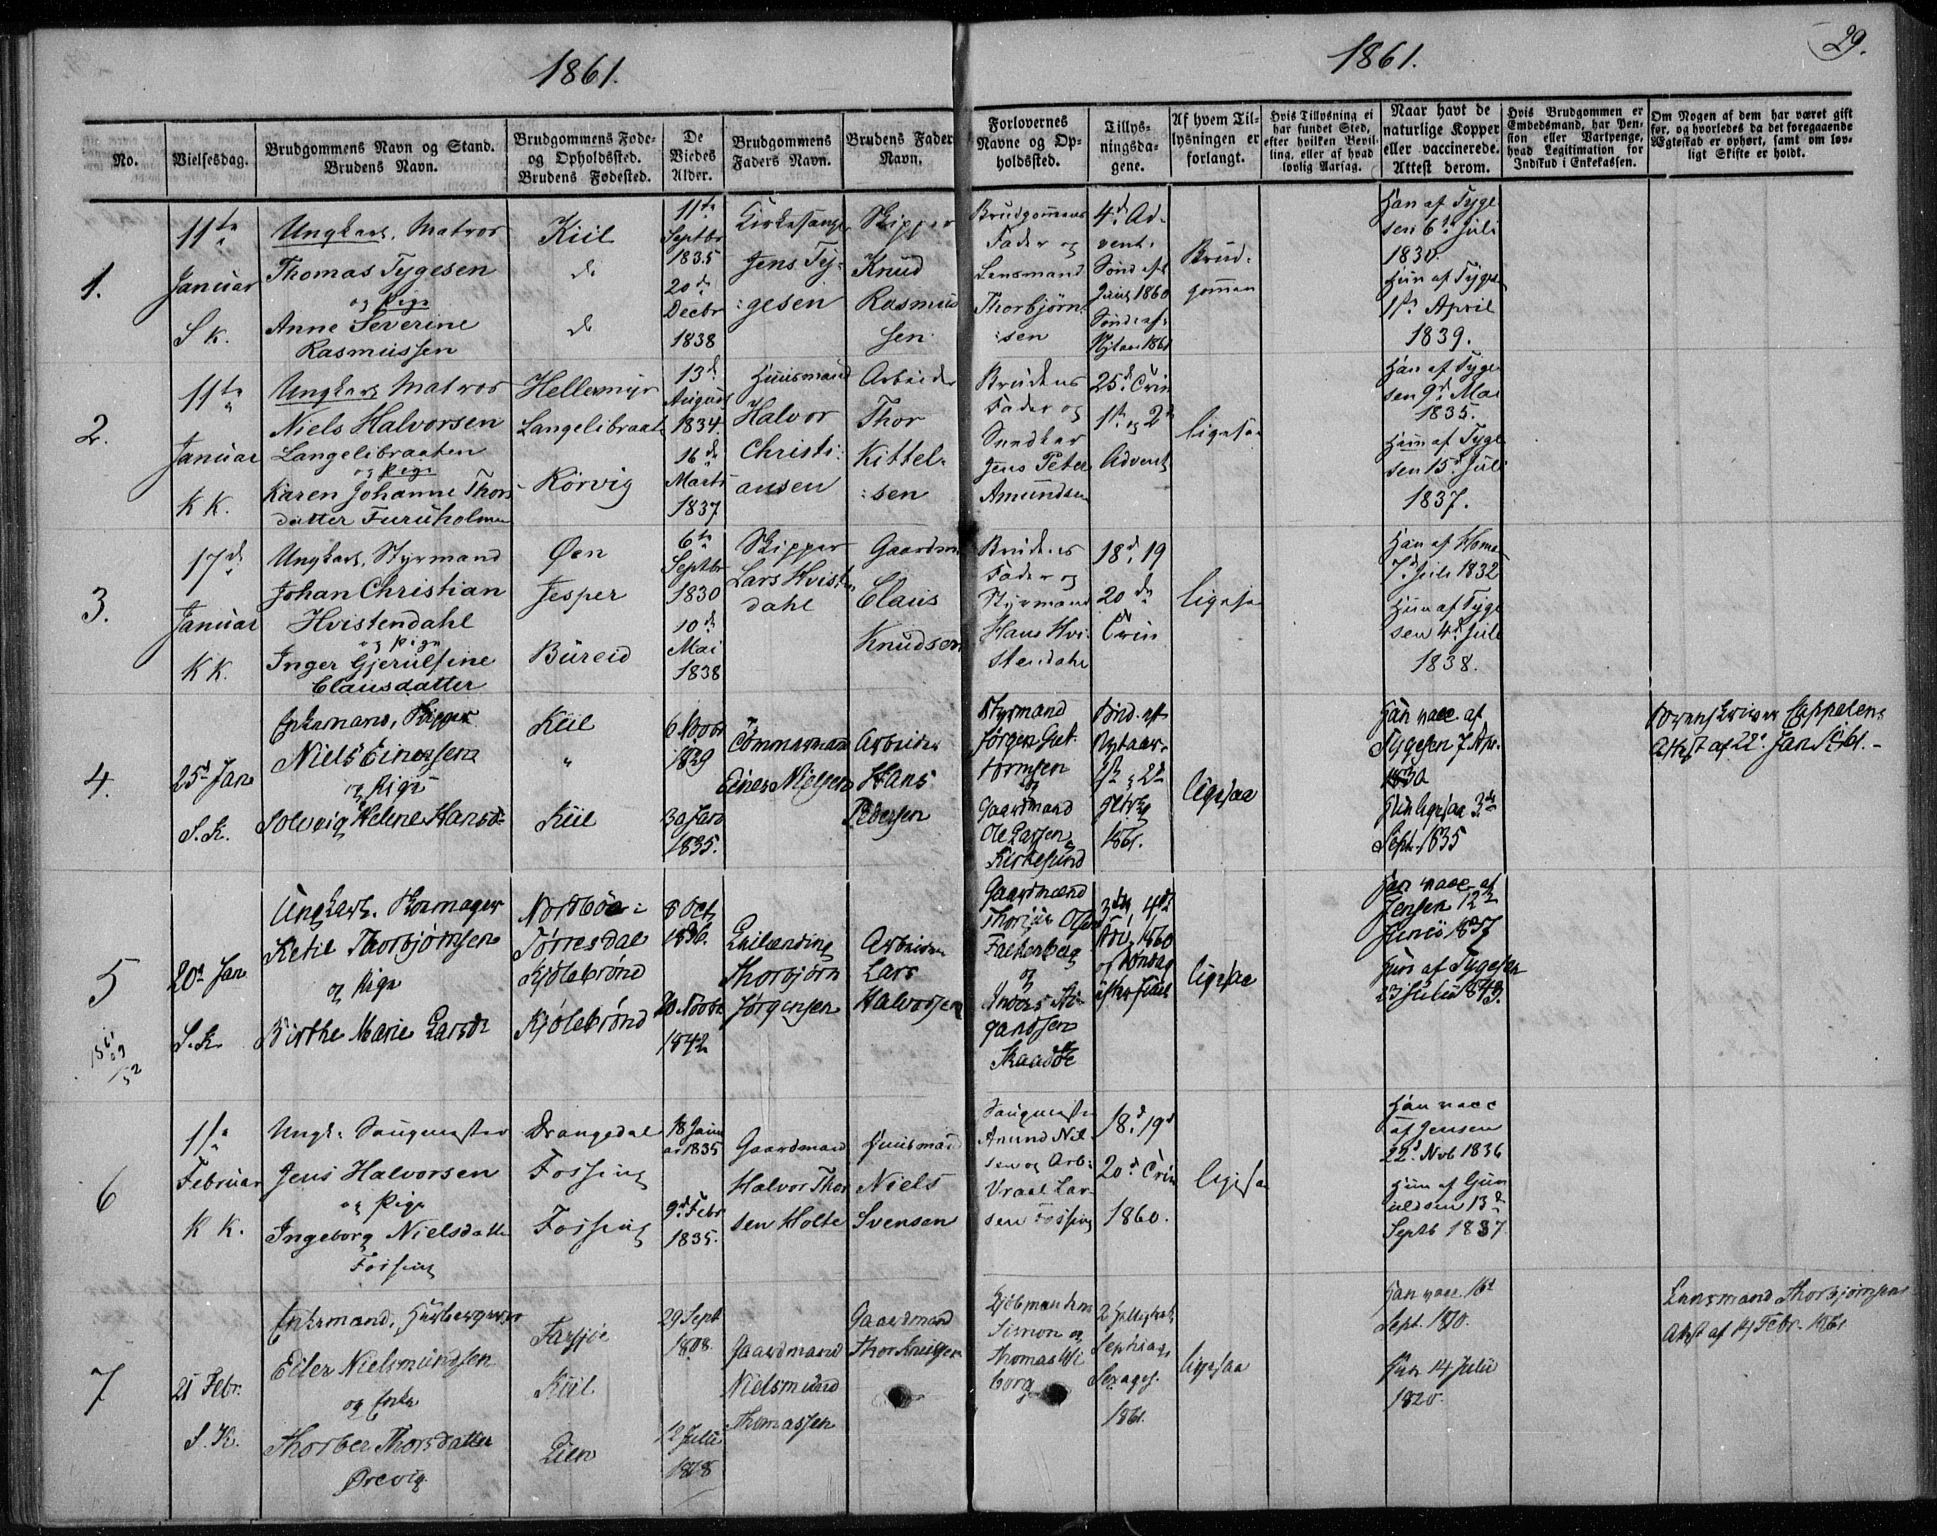 1861.
1861.
29.
No.
Vielsesdag.
Brudgommens Navn og Stand.
Brudens Navn.
Brudgommens Føde-
og Opholdssted.
Brudens Fødested.
De
Viedes
Alder.
Brudgommens
Faders Navn.
Brudens Faders
Navn.
Forlovernes
Navne og Op-
holdssted.
Tillys-
ningsda-
gene.
Af hvem Til-
lysningen er
forlangt.
Hvis Tillysning ei
har fundet Sted,
efter hvilken Bevil-
ling, eller af hvad
lovlig Aarsag.
Naar havt de
naturlige Kopper
eller vaccinerede.
Attest derom.
Hvis Brudgommen er
Embedsmand, har Pen-
sion eller Vartpenge,
hvad Legitimation for
Indskud i Enkekassen.
Om Nogen af dem har været gift
før, og hvorledes da det foregaaende
Ægteskab er ophørt, samt om lov-
ligt Skifte er holdt.
1.
11te
Januar
S K.
Ungkarl, Matros
Thomas Tygesen
og Pige
Anne Severine
Rasmussen
Kiil
do
do
11te
Septbr
1835
20de
Decbr
1838
Kirkesanger
Jens Ty-
gesen
Skipper
Knud
Rasmus
sen
Brudgommens
Fader og
Lensmand
Thorbjørn-
sen
4d Ad-
vent.
Sønd eft
Juul 1860
Sønd eft
Nytaar 1861
Brud-
gommen
Han af Tyge
sen 6te Juli
1830
Hun af Tyges
1ste April
1839.
2.
11te
Januar
K K.
Ungkarl Matros
Niels Halvorsen
Langelibraaten
og Pige
Karen Johanne Thors
datter Furuholmen
Hellemyr
Langelibraat
Rørvig
13d
August
1834.
16de
Marts
1837
Huusmand
Halvor
Christi-
ansen
Arbeider
Thor
Kittel-
sen
Brudens
Fader og
Jens Peter
Amundsen
25d Trin
1ste og 2de
Advent
ligesaa
Han af Tyge
sen 9d Mai
1835.
Hun af Tyge
sen 15d Juli
1837.
3.
17d
Januar
K K.
Ungkarl, Styrmand
Johan Christian
Hvistendahl
og Pige
Inger Gjerulfine
Clausdatter
Øen
Jesper
Büreid
6te
Septbr
1830
10de
Mai
1838
Skipper
Lars Hvisten
dahl
Gaardm
Claus
Knudsen
Brudens
Fader og
Styrmand
Hans Hvi-
stendahl
18d, 19
20de
Trin
ligesaa
Han af Homa
7d Juli 1832
Hun af Tyge
sen 4d Juli
1838.
4.
25d Jan
S. K.
Enkemand, Skipper
Niels Einersen
og Pige
Solveig Helene Hansd
Kiil
"
Kiil
6 Novbr
1829
30 Jan
1835.
Tømmermand
Einer Nielsen
Arbeider
Hans
Pedersen
Styrmand
Jørgen Gut-
tormsen
og
Gaardmand
Ole Larsen
Kirkesund
Sønd. eft
Nytaar
1861.
ligesaa
Han vacc af
Tygesen 7 Apr.
1830
Hun ligesaa 3de
Sept. 1835
Sorenskriver Cappelens
Attest af 22d Jan 1861.
5
20d Jan
S. K.
Ungkarl, Skomager
Ketil Thorbjørnsen
og Pige
Birthe Marie Larsdr
Nordbøe i
Tørresdal
Kjølebrønd
Kjølebrønd
8 Oct
1836.
20 Novbr
1842
Thorbjørn
Jørgensen
Arbeider
Lars
Halvorsen
Gaardmand
Olsen
og
Anders Aa-
gandsen
Skaadøe
3de, 4de
Adv. 1860
og Søndag
efter Juul
ligesaa
Han vacc af
Jensen 12te
Juni 1837
Hun af Tygesen
23 Juli 1843.
6
1ste
Februar
K K.
Ungk. Saugmester
Jens Halvorsen
og Pige
Ingeborg Nielsdatter
Fossing
Drangedal
Fossing
Fossing
18 Janu
ar 1835
9d Febr
1835.
Gaardmand
Halvor Thor
sen Holte
Huusmand
Niels
Svensen
Saugmester
Amund Nil-
sen og Arb.
Vraal Lar-
sen Fossing
18d, 19d
20d Trin
1860.
ligesaa
Han vacc
af Jensen
22d Nvb 1836
Hun af Gun
uldsen 13de
Septb 1837
7
21 Febr.
S. K.
Enkemand,
Edler Nielsmundsen
og Enke
Thorber Thorsdatter
Ørevig
Farsjøe
Kiil
Lien
29 Sept
1808.
12 Julii
1818
Gaardmand
Nielsmund
Thomassen
Gaardmand
Thor Knudsen
Kjøbmændene
Simon og
Thomas Wi
borg
Septuag.
Sexages.
1861.
ligesaa
Han vacc. 16d
Sept. 1810.
Hun 14 Julii
1820.
Lensmand Thorbjørnsens
Attest af 14 Febr. 1861